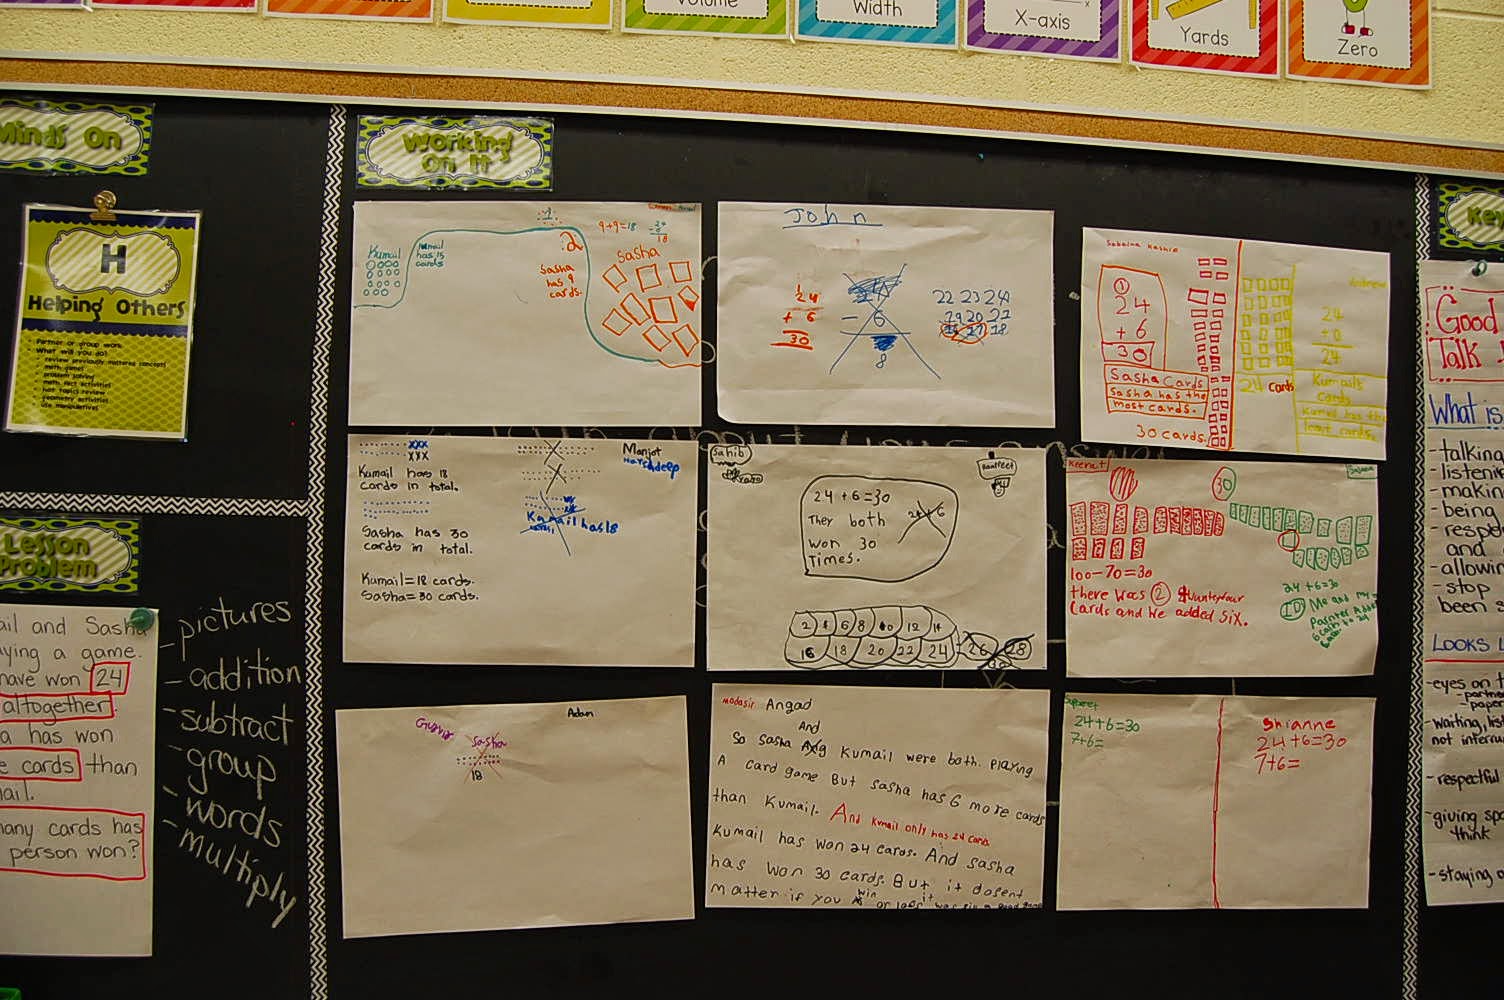 Volume
Width
X-axis
Yards
Zero
Minds On
H
Helping Others
Partner or group work
What will you do?
review previously mastered concepts
math games
problem solving
math fact activities
hot topics review
geometry activities
use manipulatives
Lesson
Problem
ail and Sasha
aying a game.
have won 24
altogether.
a has won
e cards than
ail.
any cards has
person won?
-pictures
-addition
-subtract
-group
-words
-multiply
Working
On It
Kumail
Kumail
has 15
cards
1
2
9+9=18
18
Sasha
has 9
cards.
Sasha
John
24
+ 6
30
- 6
8
22 23 24
19 20 21
16 17 18
1
24
+ 6
30
Sasha Cards
Sasha has the
most cards.
30 cards.
24 cards
24
+0
24
Kumail's
cards
Kumail has the
least cards.
XXX
XXX
Kumail has 18
cards in total.
Sasha has 30
cords in total.
Kumail=18 cards.
Sasha=30 cards.
Manjot
Harshdeep
Kumail has 18
Sahib
24+6=30
They both
won 30
Times.
24+6
2 4 6 8 10 12 14
16 18 20 22 24 26 28
30
Keerat
30
100-70=30
there was 2
cards and he added six.
24+6=30
Me and my
Adam
Sasha
18
modasir Angad
And
So Sasha Kumail were both playing
A card game But sasha has 6 more cards
than Kumail. And Kumail only has 24 card
Kumail has won 24 cards. And sasha
has won 30 cards. But it dosent
matter if you win or loos it was
24+6=30
7+6=
Shianne
24+6=30
7+6=
Good
Talk
What is
-talking
-listenin
-makin
-being
-respe
and
-allowin
-stop
been s
LOOKS L
-eyes on t
-waiting, list
not interru
-respectful
-giving spa
think
-staying o